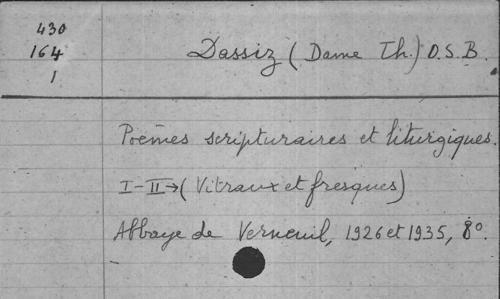 430
164
1
Dassiz (Dame Th.) O.S.B.
Poèmes scripturaires et liturgiques.
I-II→(Vitraux et fresques)
Abbaye de Verneuil, 1926 et 1935, 8°.